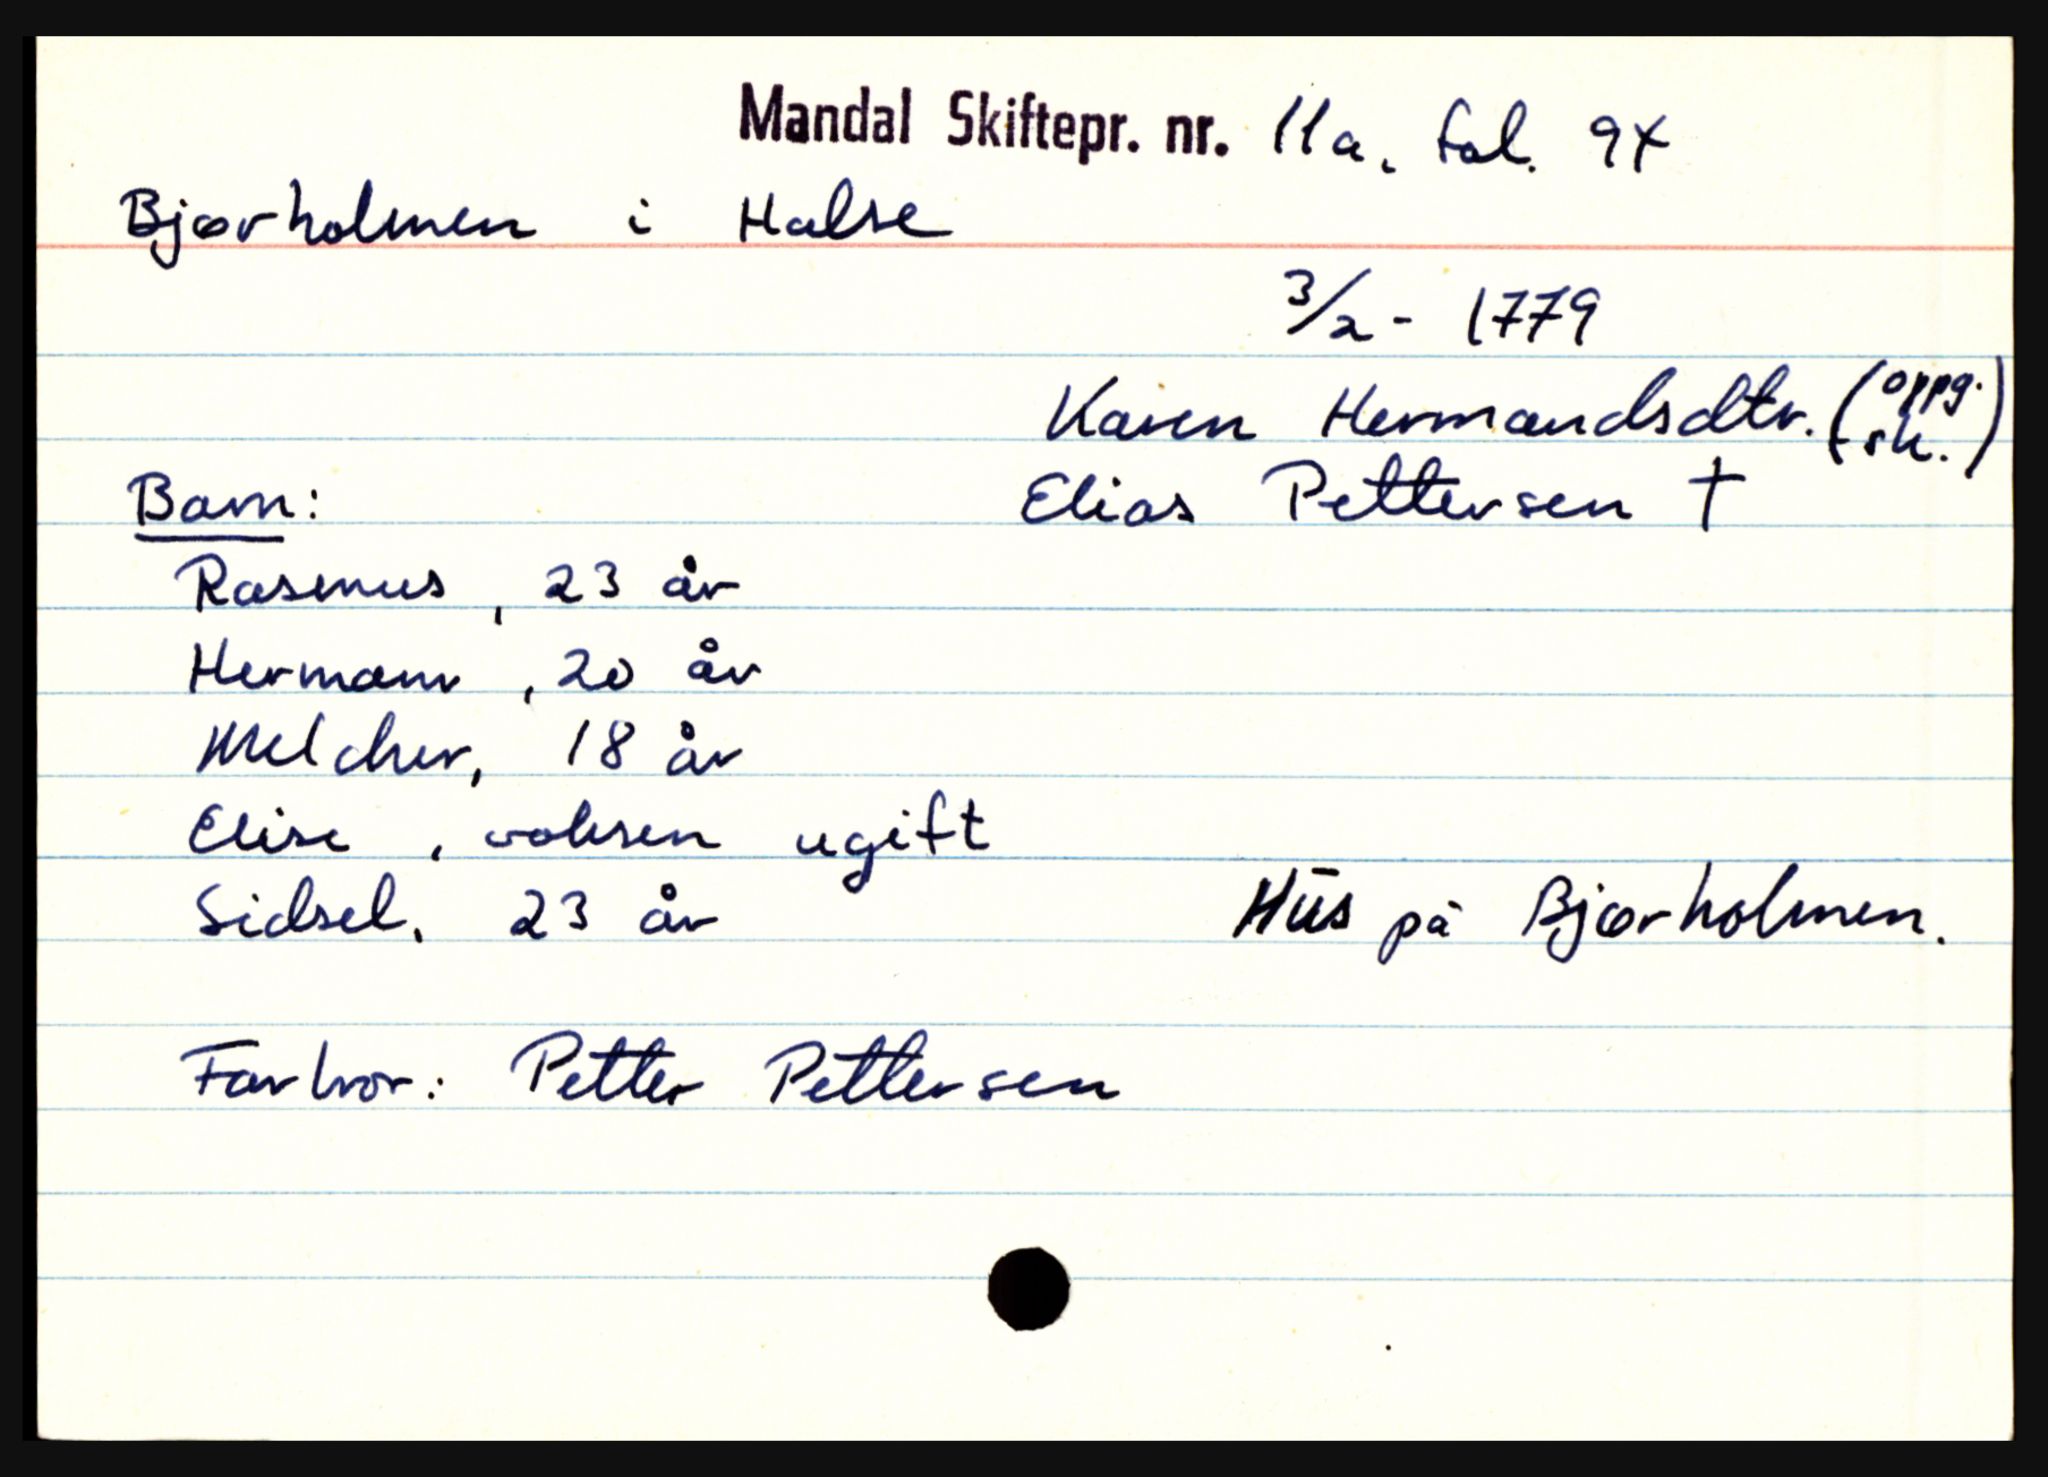 Mandal Skiftepr. nr. 11a, fol. 94
Bjørholmen i Halse
3/2 - 1779
Karen Hermandsdtr. (oppg. sk.)
Elias Pettersen †
Barn:
Rasmus, 23 år
Hermann, 20 år
Melcher, 18 år
Elise, voksen ugift
Sidsel, 23 år
Hūs på Bjørholmen.
Farbror: Petter Pettersen